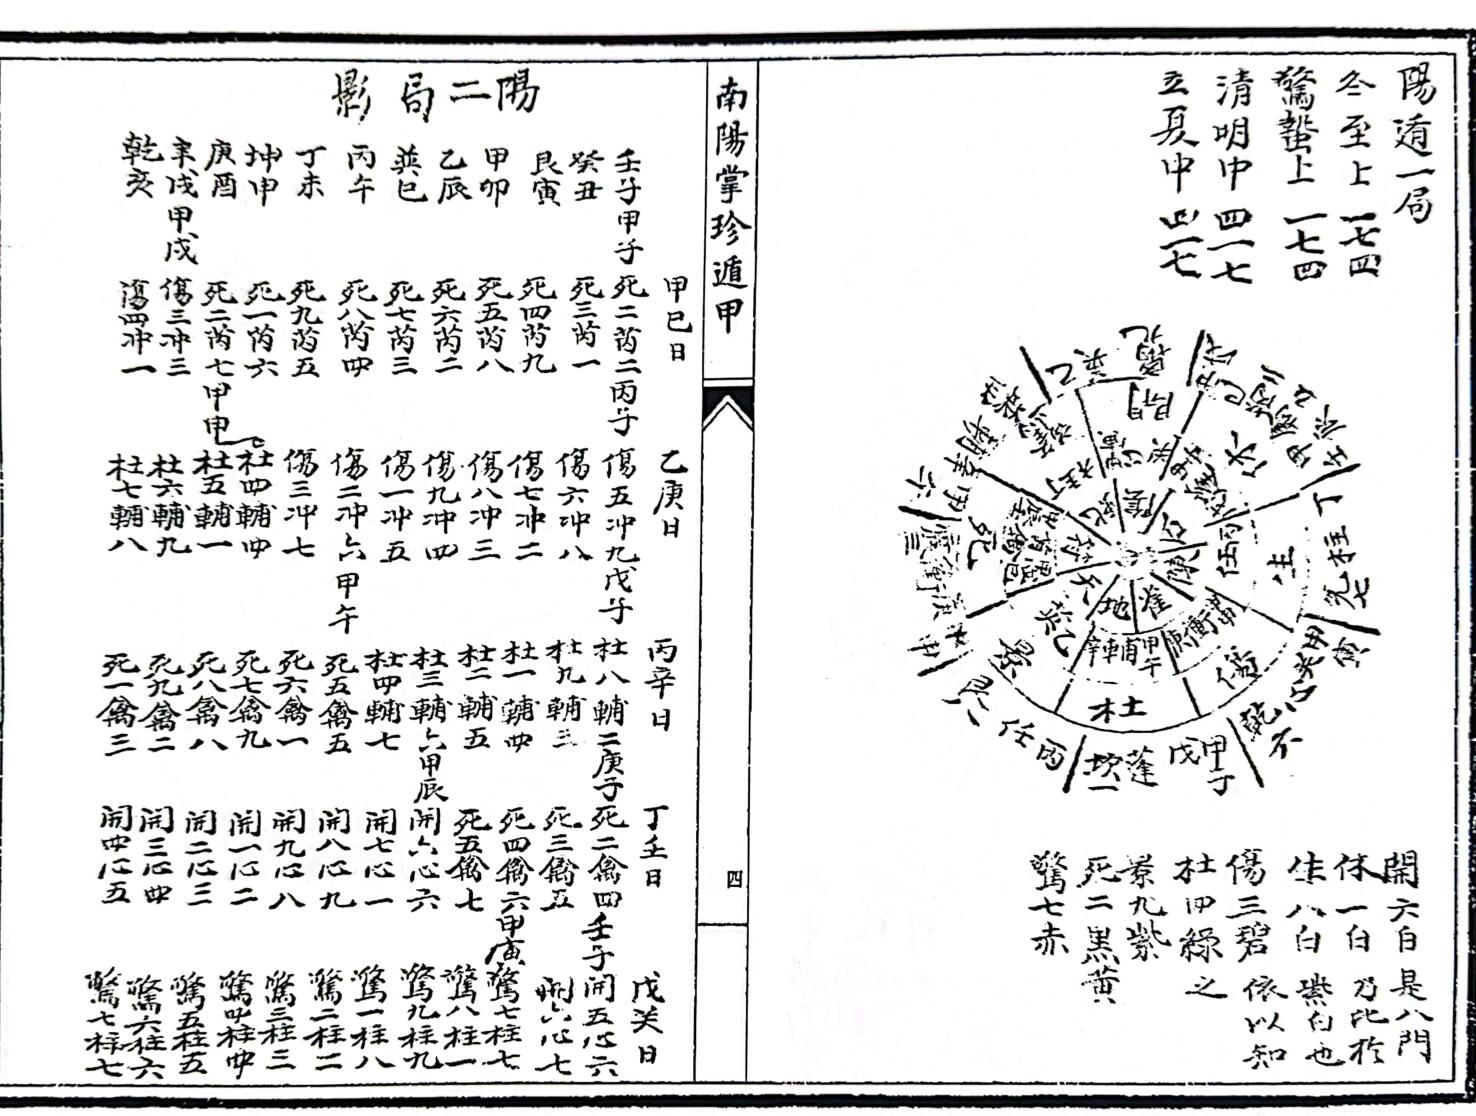 陽遁一局
冬至上 一七四
驚蟄上 一七四
清明中 四一七
立夏中 四一七
開六白 是八門
休一白 乃比於
生八白 紫白也
傷三碧 依以知
杜四綠 之
景九紫
死二黑黃
驚七赤
開
休
生
傷
杜
景
死
丁柱
兌七
乾六
甲子
戊
蓬
坎一
丙
任
艮八
地
雀
陳
符
英乙
甲午
輔辛
南陽掌珍遁甲
四
陽二局影
壬子甲子
癸丑
艮寅
甲卯
乙辰
巽巳
丙午
丁未
坤申
庚酉
辛戌甲戌
乾亥
甲己日
死二芮二丙子
死三芮一
死四芮九
死五芮八
死六芮二
死七芮三
死八芮四
死九芮五
死一芮六
死二芮七甲申
傷三冲三
傷四冲一
乙庚日
傷五冲九戊子
傷六冲八
傷七冲二
傷八冲三
傷九冲四
傷一冲五
傷二冲六甲午
傷三冲七
杜四輔四
杜五輔一
杜六輔九
杜七輔八
丙辛日
杜八輔二庚子
杜九輔三
杜一輔四
杜二輔五
杜三輔六甲辰
杜四輔七
死五禽五
死六禽一
死七禽九
死八禽八
死九禽二
死一禽三
丁壬日
死二禽四壬子
死三禽五
死四禽六甲寅
死五禽七
開六心六
開七心一
開八心九
開九心八
開一心二
開二心三
開三心四
開四心五
戊癸日
開五心六
開六心七
驚七柱七
驚八柱一
驚九柱九
驚一柱八
驚二柱二
驚三柱三
驚四柱四
驚五柱五
驚六柱六
驚七柱七